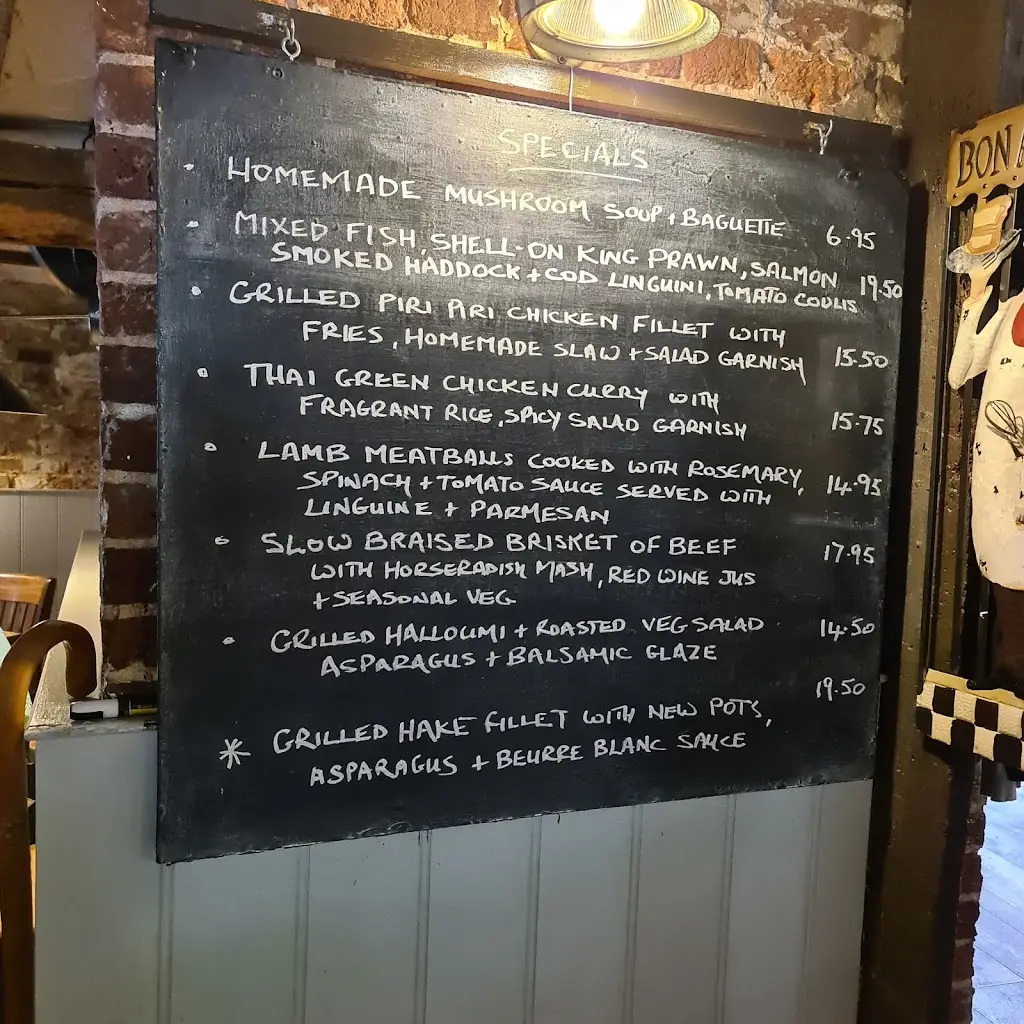 SPECIALS
• HOMEMADE MUSHROOM SOUP, BAGUETTE 6.95
• MIXED FISH, SHELL-ON KING PRAWN, SALMON 19.50
SMOKED HADDOCK + COD LINGUINI, TOMATO COULIS
• GRILLED PIRI PIRI CHICKEN FILLET WITH
FRIES, HOMEMADE SLAW + SALAD GARNISH 15.50
• THAI GREEN CHICKEN CURRY WITH
FRAGRANT RICE, SPICY SALAD GARNISH 15.75
• LAMB MEATBALLS COOKED WITH ROSEMARY, 14.95
SPINACH + TOMATO SAUCE SERVED WITH
LINGUINE + PARMESAN
• SLOW BRAISED BRISKET OF BEEF 17.95
WITH HORSERADISH MASH, RED WINE JUS
+ SEASONAL VEG
• GRILLED HALLOUMI + ROASTED VEG SALAD 14.50
ASPARAGUS + BALSAMIC GLAZE
19.50
* GRILLED HAKE FILLET WITH NEW POTS,
ASPARAGUS + BEURRE BLANC SAUCE
BON